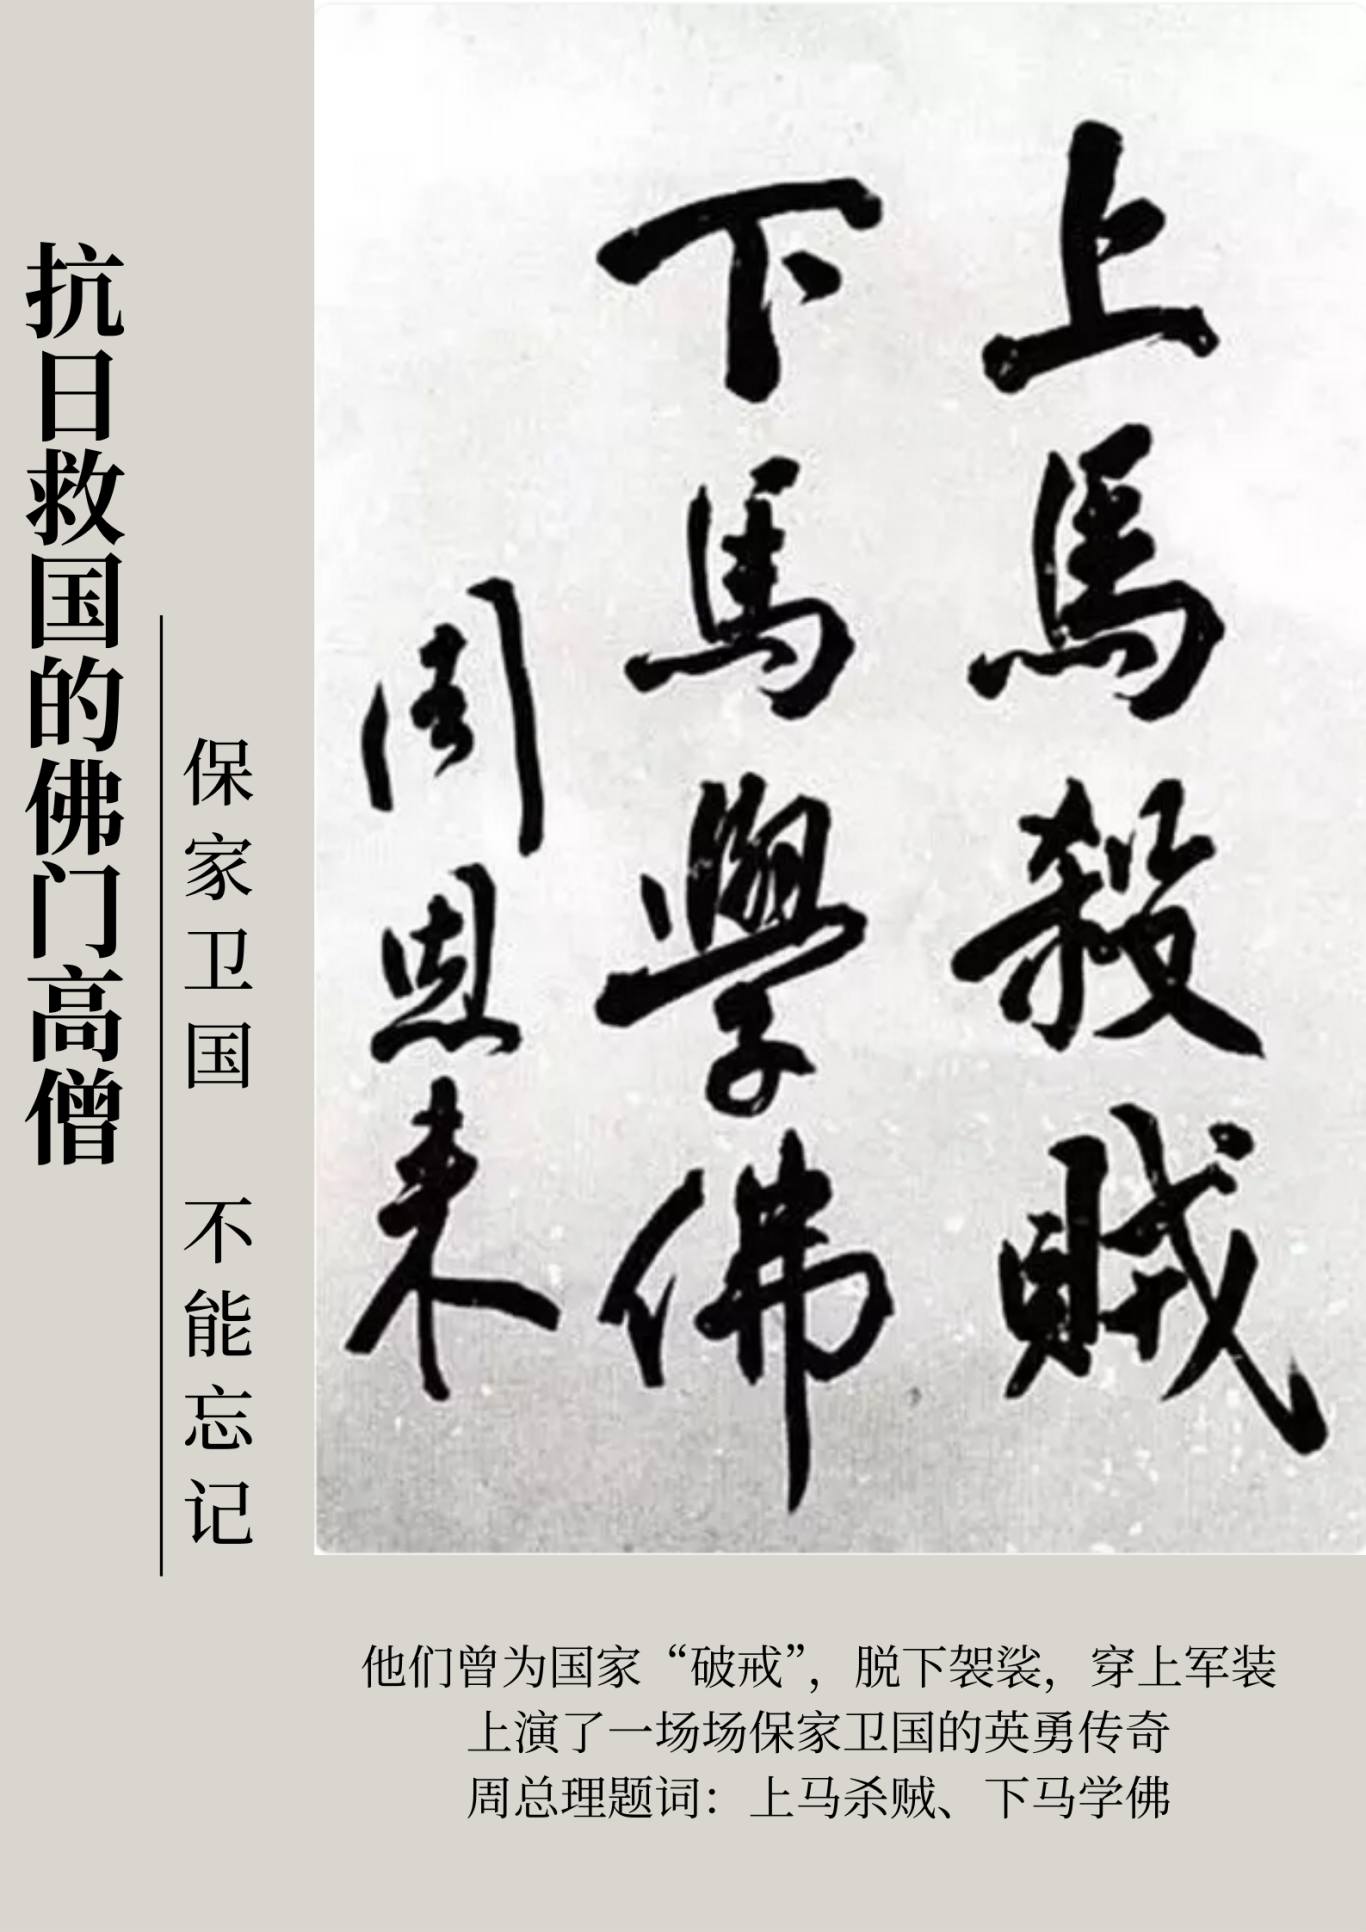 抗日救国的佛门高僧
保家卫国 不能忘记
上馬殺賊
下馬學佛
周恩来
他们曾为国家“破戒”，脱下袈裟，穿上军装
上演了一场场保家卫国的英勇传奇
周总理题词：上马杀贼、下马学佛